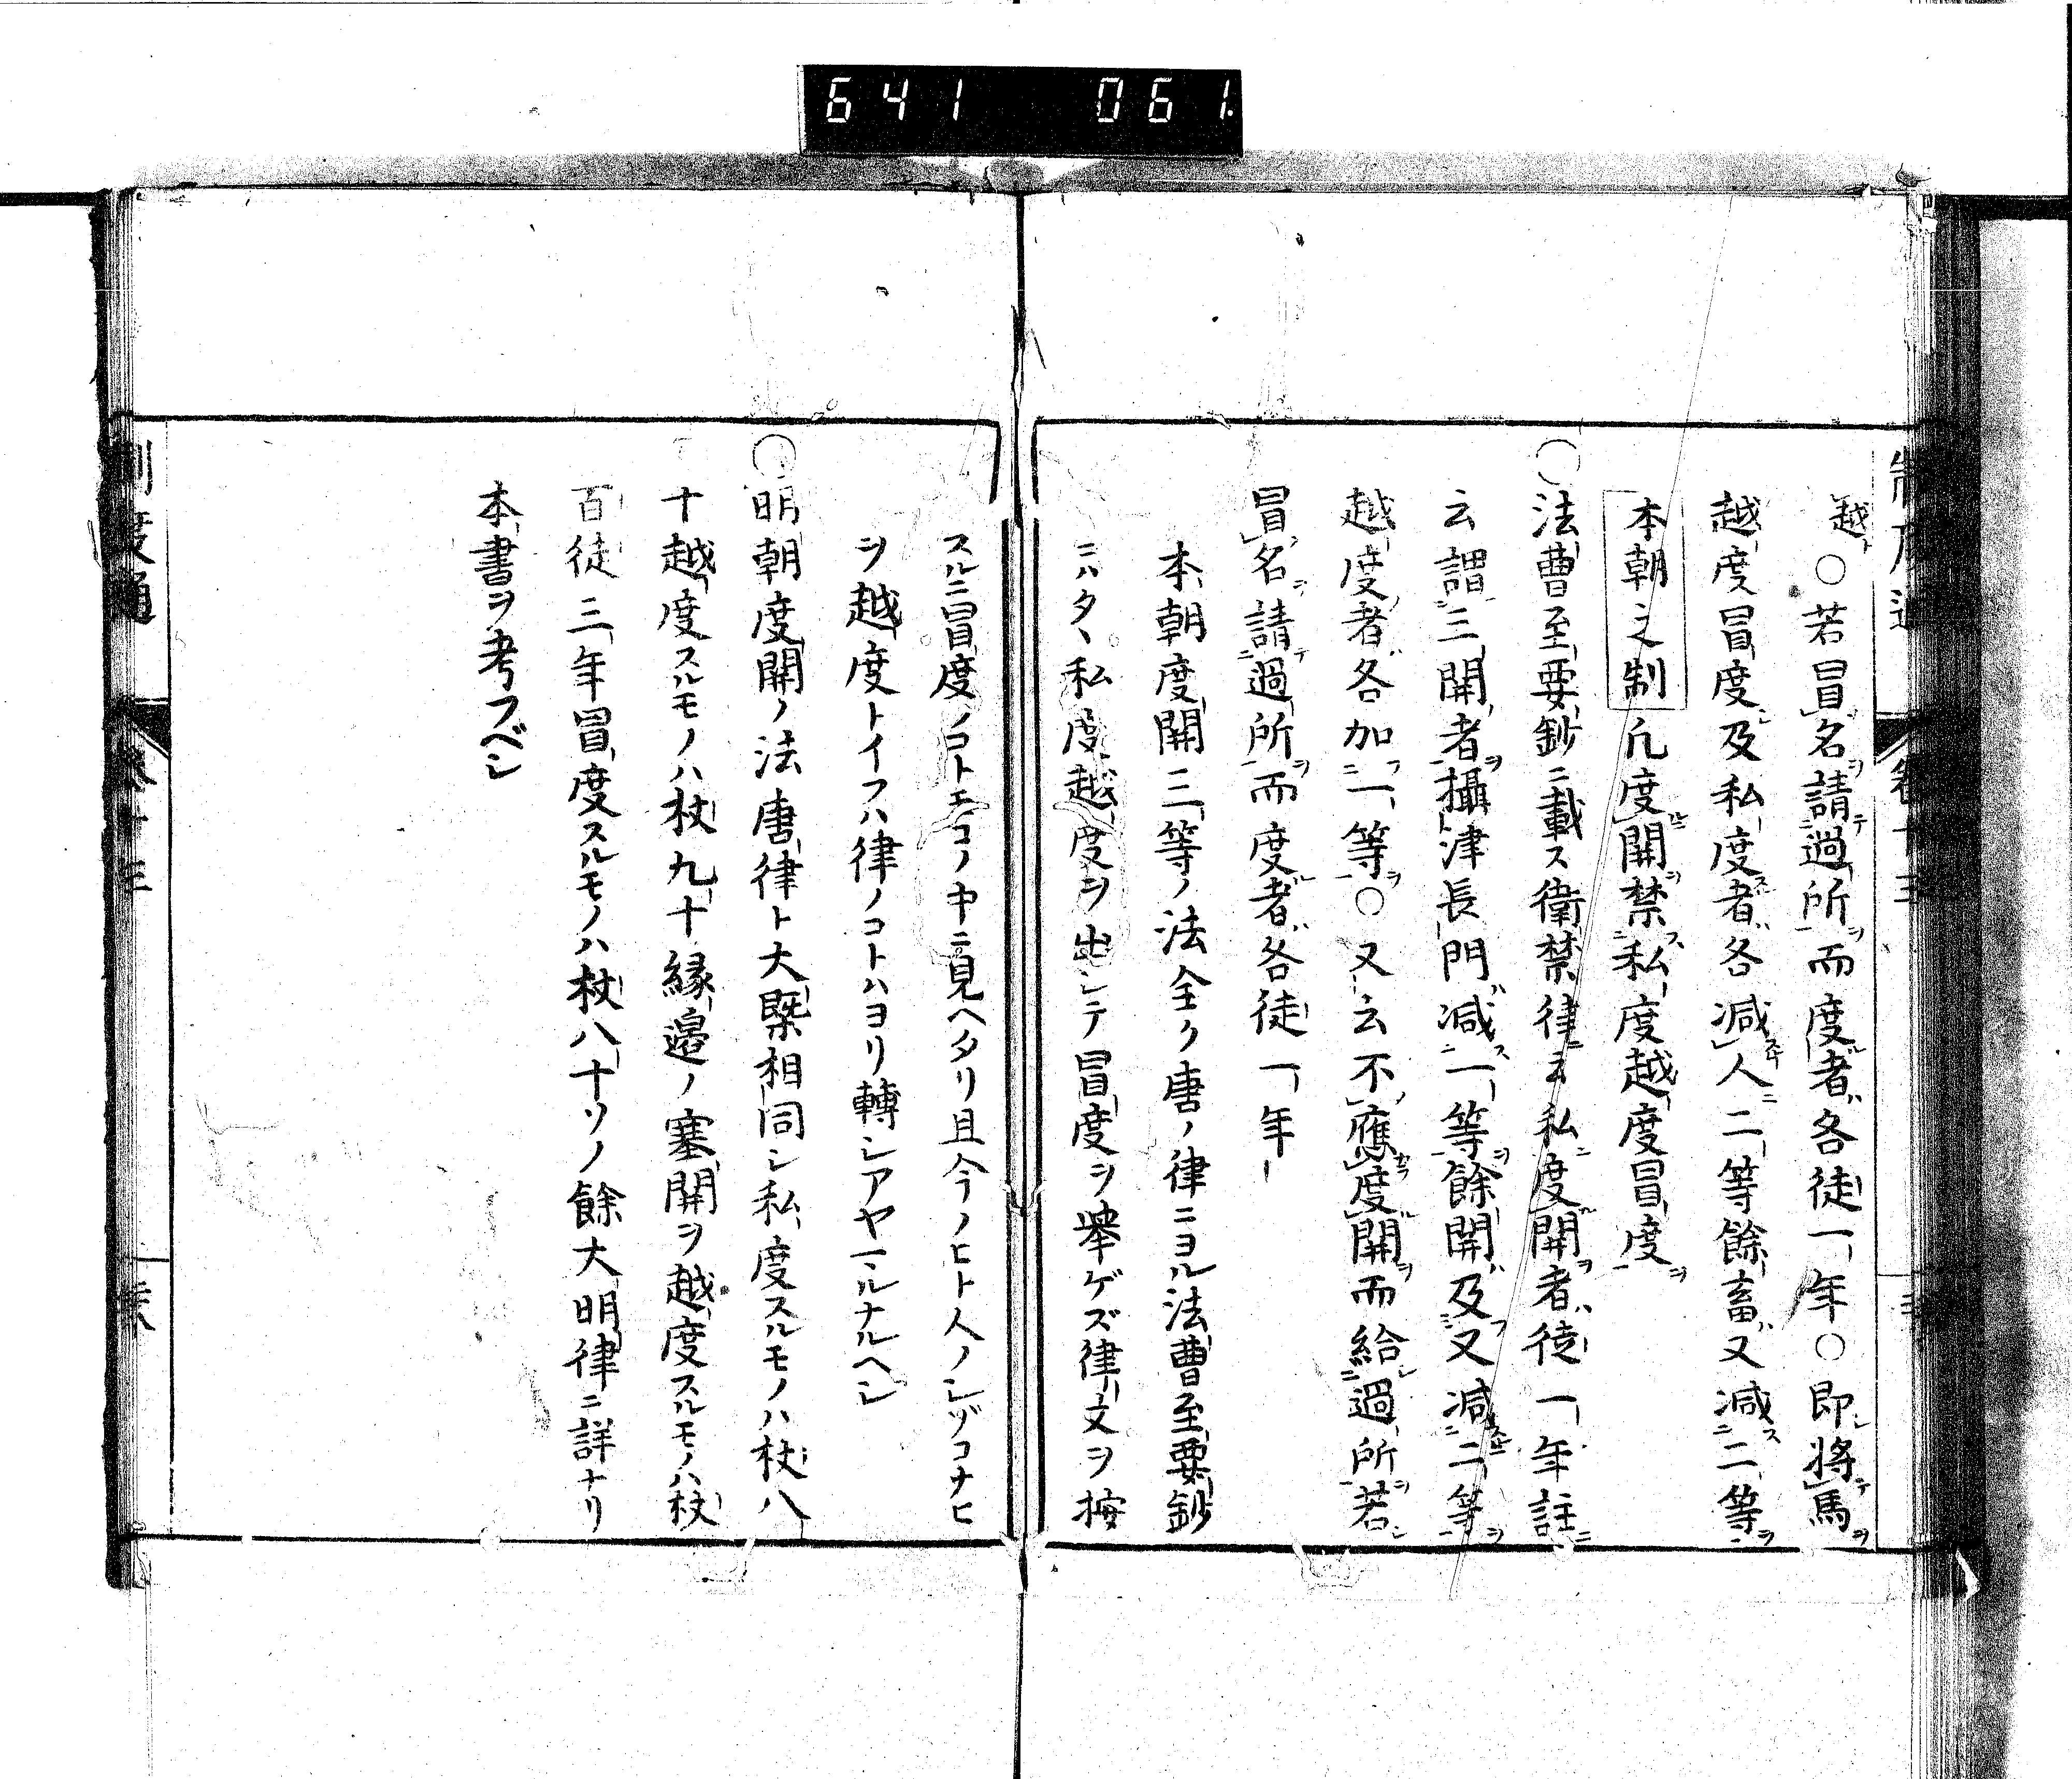 641 061
制度通 卷十三
越○若冒名請過所而度者各徒一年○即將馬
越度冒度及私度者各減人二等餘畜又減二等
本朝之制凡度關禁私度越度冒度
○法曹至要鈔ニ載ス衛禁律云私度關者徒一年註
云謂三關者攝津長門減一等餘關及又減二等
越度者各加一等○又云不應度關而給過所若
冒名請過所而度者各徒一年
本朝度關三等ノ法全ク唐ノ律ニヨル法曹至要鈔
ニハタヽ私度越度ヲ出シテ冒度ヲ舉ゲズ律文ヲ按
スルニ冒度ノコトモコノ中ニ見ヘタリ且今ノヒト人ノシゾコナヒ
ヲ越度トイフハ律ノコトハヨリ轉シアヤマルナルヘシ
○明朝度關ノ法唐律ト大槩相同シ私度スルモノハ杖八
十越度スルモノハ杖九十緣邉ノ塞關ヲ越度スルモノハ杖
百徒三年冒度スルモノハ杖八十ソノ餘大明律ニ詳ナリ
本書ヲ考フベシ
制度通 卷十三